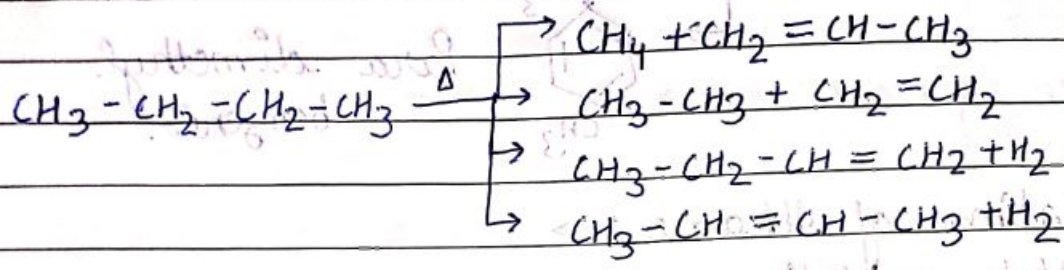 CH₄ + CH₂ = CH - CH₃
CH₃ - CH₂ - CH₂ - CH₃ Δ→ CH₃ - CH₃ + CH₂ = CH₂
CH₃ - CH₂ - CH = CH₂ + H₂
CH₃ - CH = CH - CH₃ + H₂